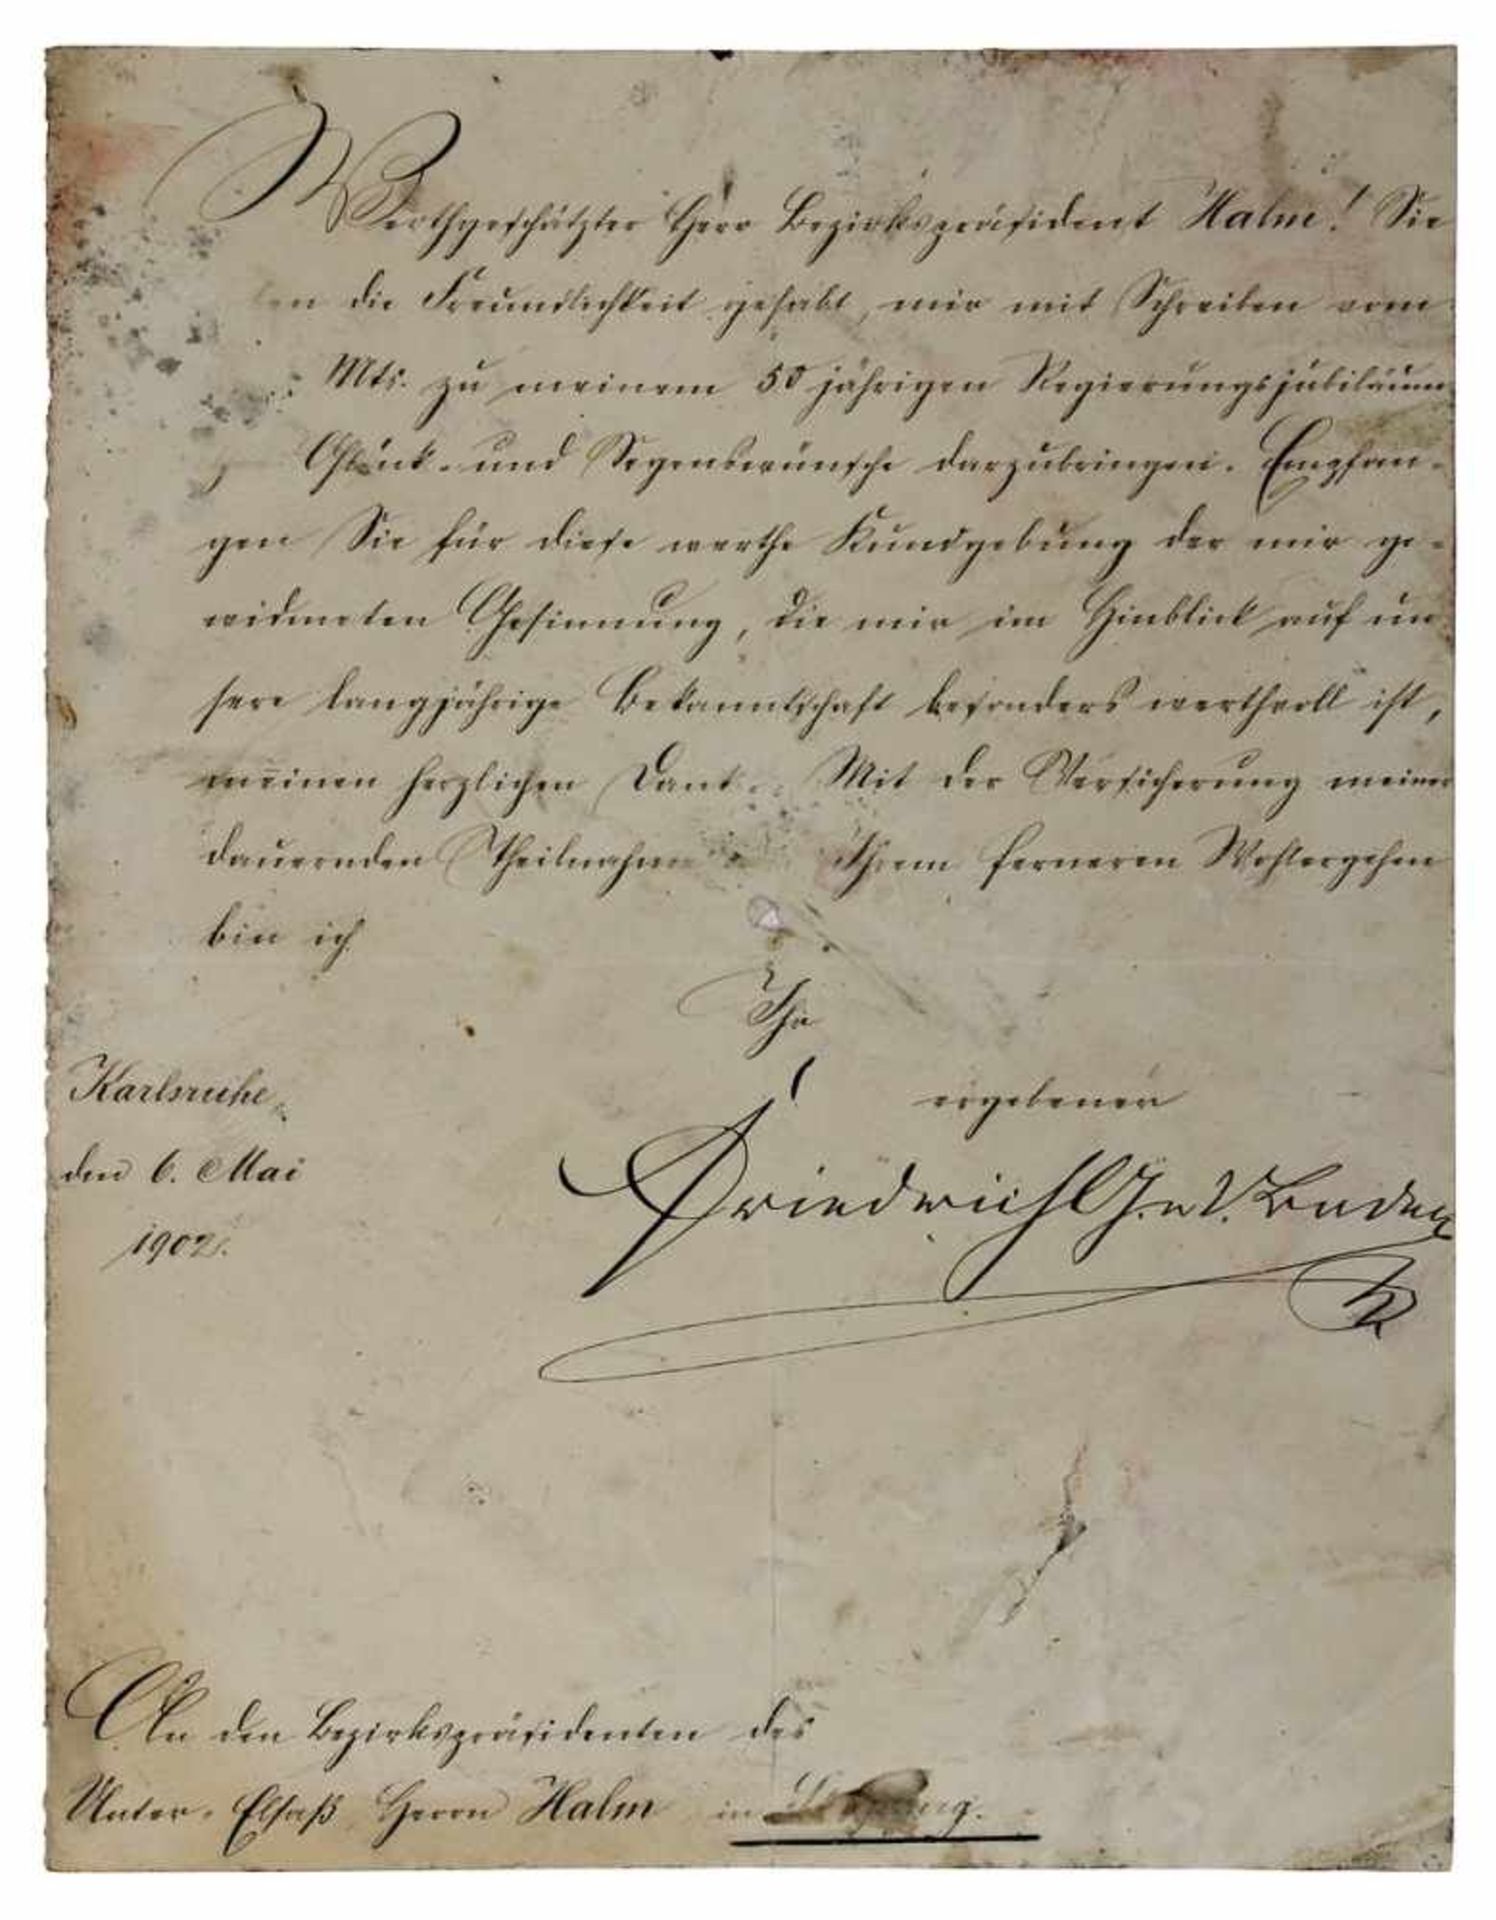 Werthgeschätzter Herr Bezirkspräsident Halm! Sie
die Freundlichkeit gehabt, mir mit Schreiben vom
Mts. zu meinem 50 jährigen Regierungsjubiläum
Glück- und Segenswünsche darzubringen. Empfan-
gen Sie für diese werthe Kundgebung der mir ge-
widmeten Gesinnung, die mir im Hinblick auf un
sere langjährige Bekanntschaft besonders werthvoll ist,
meinen herzlichen Dank. Mit der Versicherung meiner
dauernden Theilnahme Ihrem ferneren Wohlergehen
bin ich
Ihr
ergebener
Karlsruhe
den 6. Mai
1902.
Friedrich G. v. Baden
An den Bezirkspräsidenten des
Unter-Elsaß Herrn Halm in